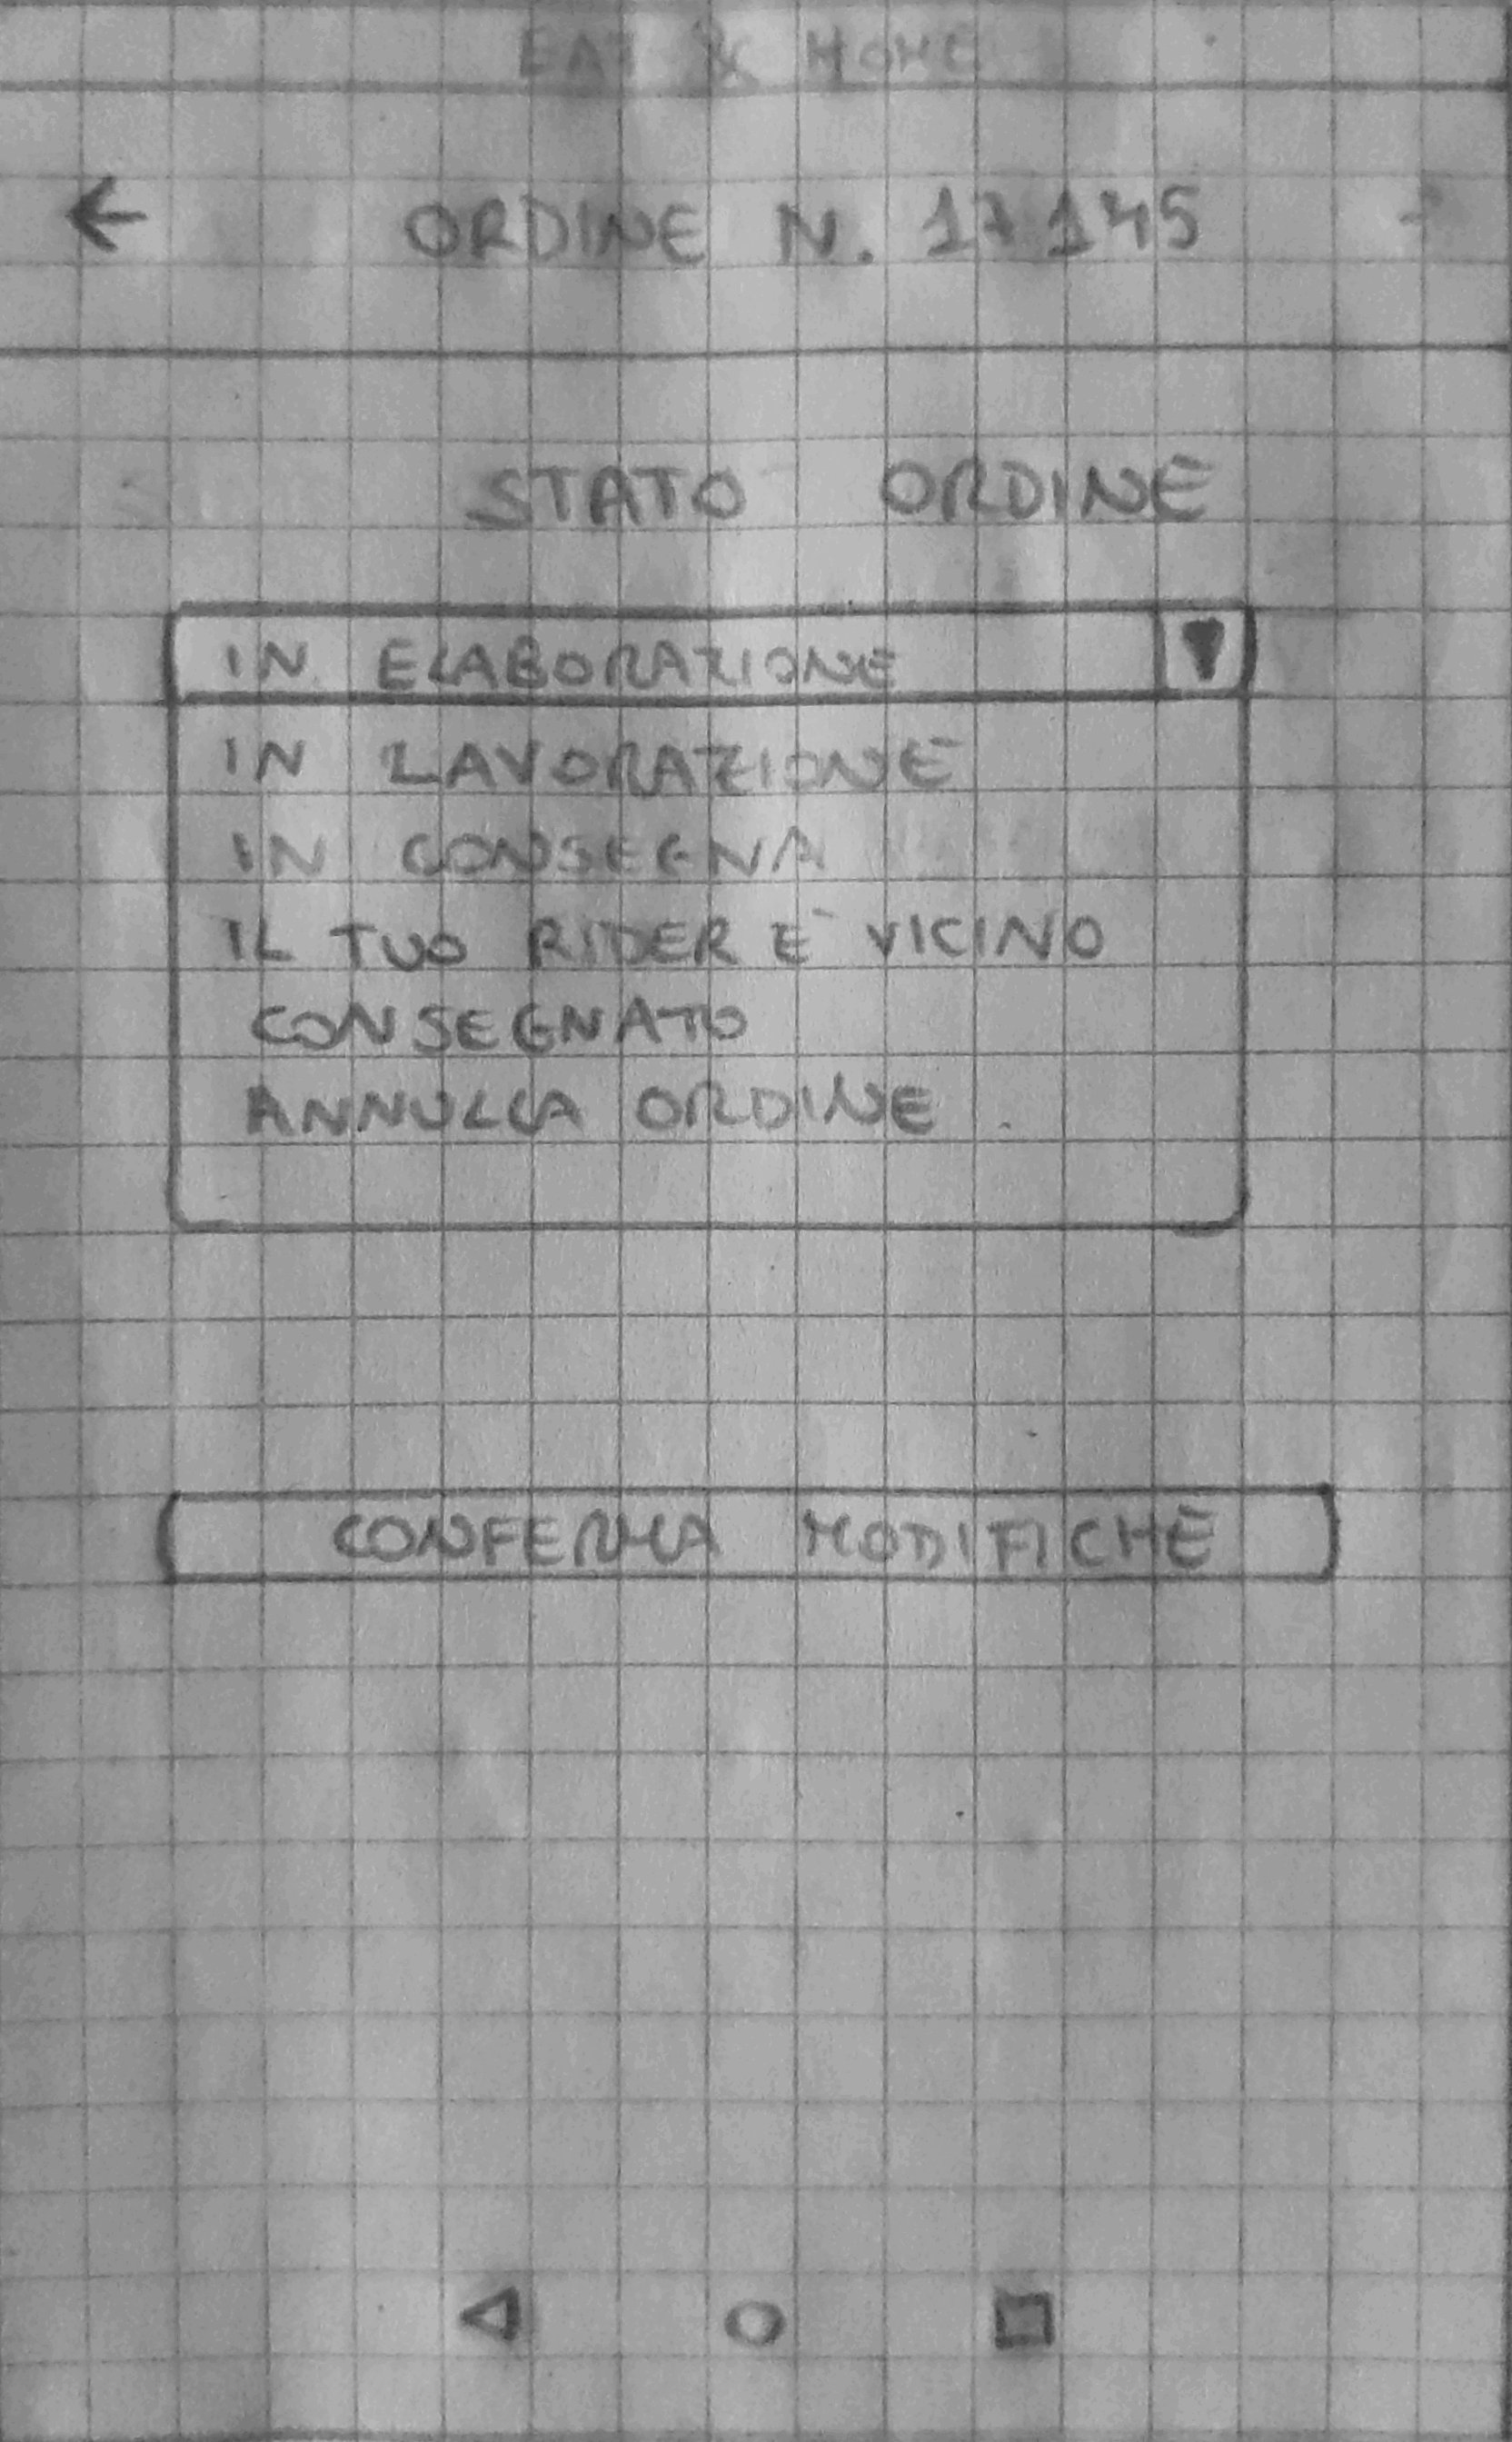 EAT & HOME
← ORDINE N. 17145
STATO ORDINE
IN ELABORAZIONE
IN LAVORAZIONE
IN CONSEGNA
IL TUO RIDER E' VICINO
CONSEGNATO
ANNULLA ORDINE
CONFERMA MODIFICHE